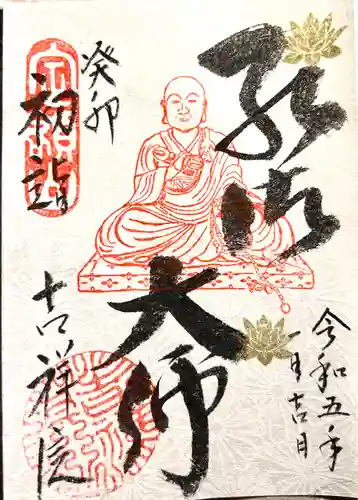 癸卯
初詣
弘法大師
令和五年
一月吉日
吉祥院